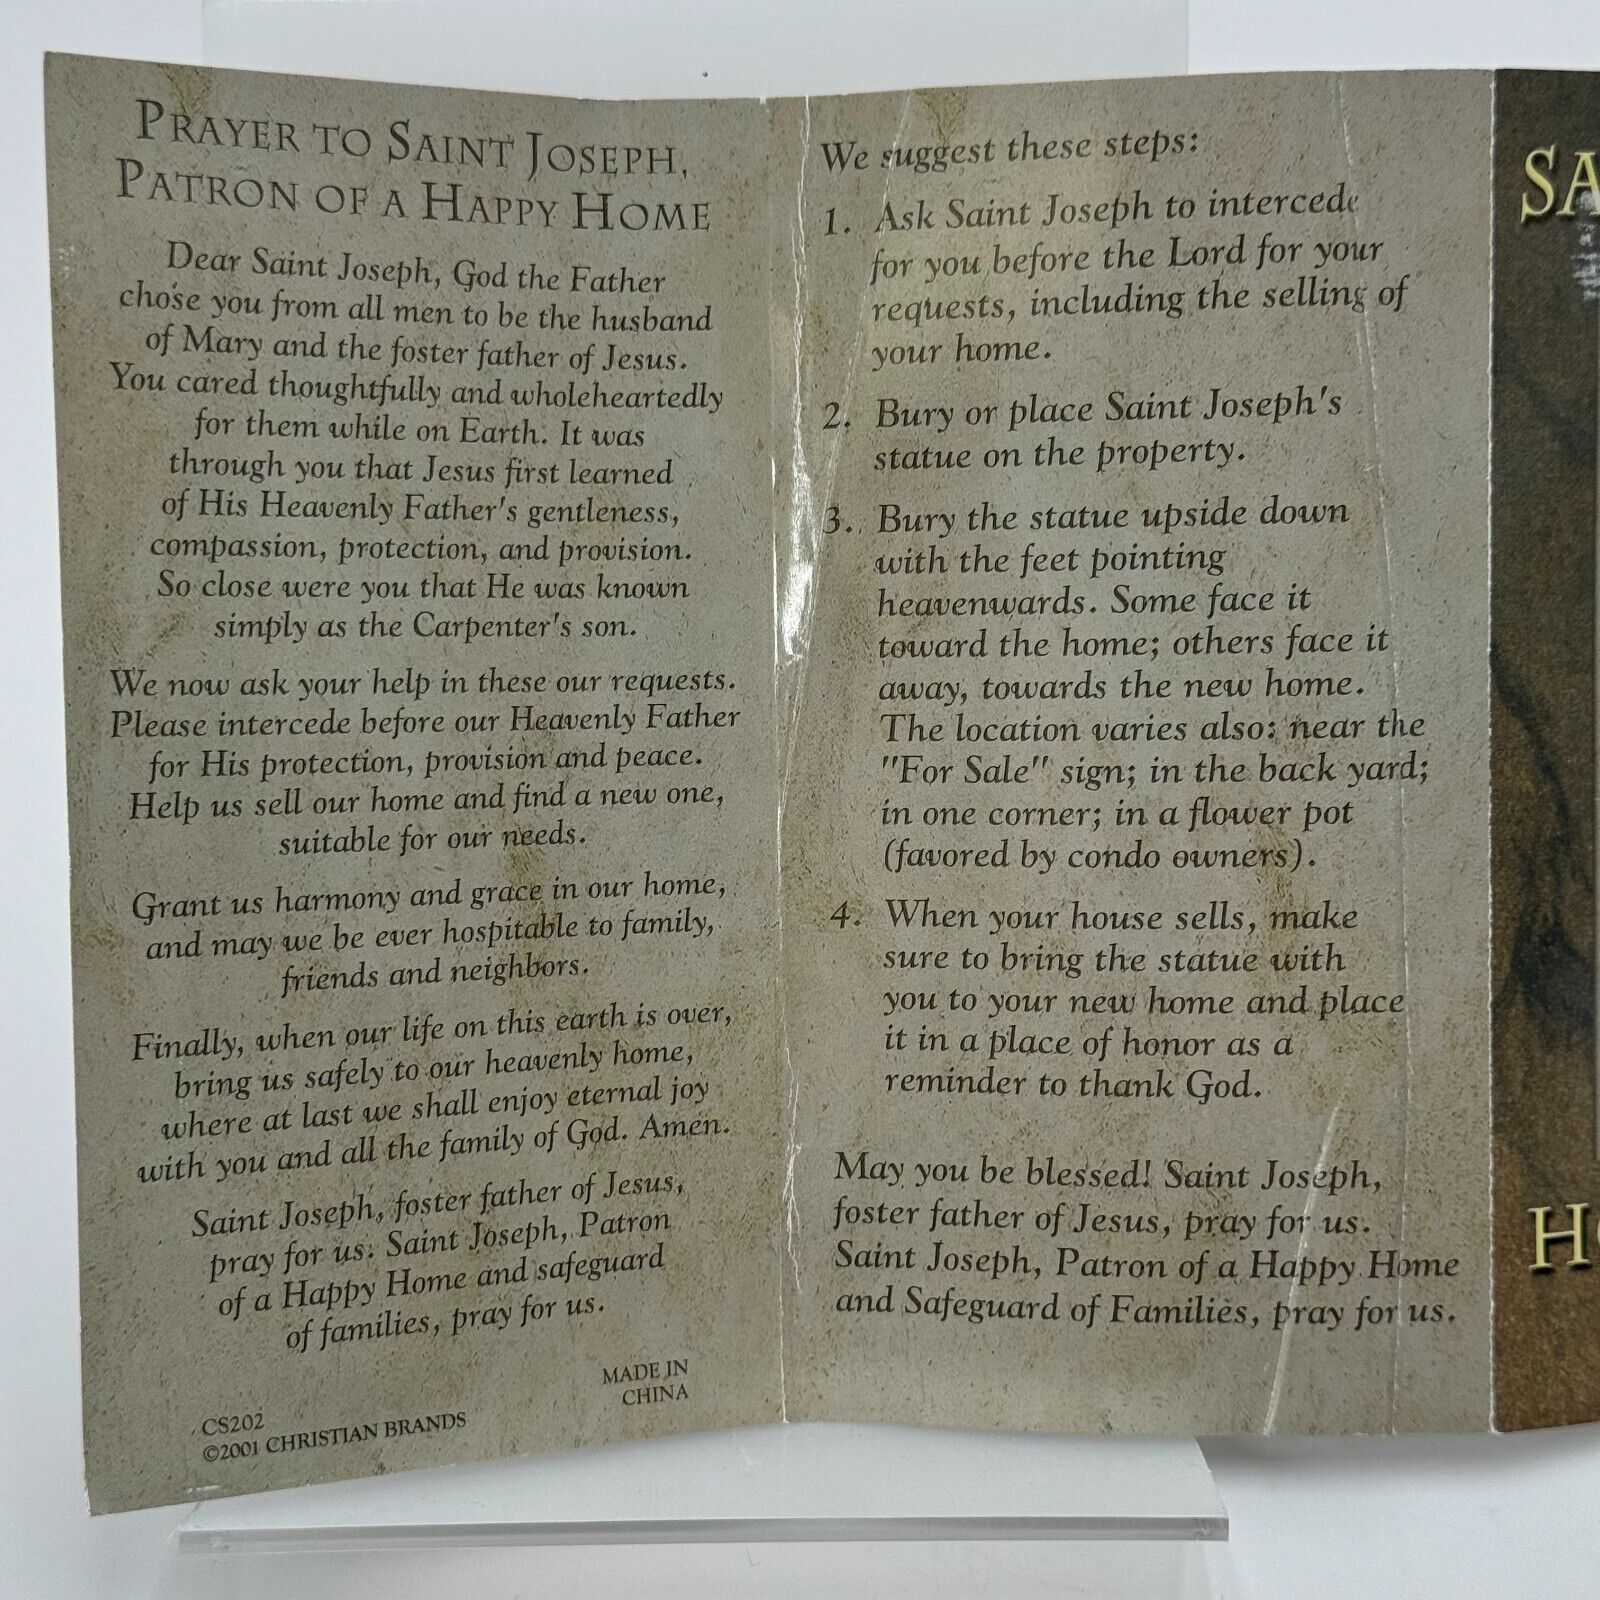 PRAYER TO SAINT JOSEPH,
PATRON OF A HAPPY HOME
Dear Saint Joseph, God the Father
chose you from all men to be the husband
of Mary and the foster father of Jesus.
You cared thoughtfully and wholeheartedly
for them while on Earth. It was
through you that Jesus first learned
of His Heavenly Father's gentleness,
compassion, protection, and provision.
So close were you that He was known
simply as the Carpenter's son.
We now ask your help in these our requests.
Please intercede before our Heavenly Father
for His protection, provision and peace.
Help us sell our home and find a new one,
suitable for our needs.
Grant us harmony and grace in our home,
and may we be ever hospitable to family,
friends and neighbors.
Finally, when our life on this earth is over,
bring us safely to our heavenly home,
where at last we shall enjoy eternal joy
with you and all the family of God. Amen.
Saint Joseph, foster father of Jesus,
pray for us. Saint Joseph, Patron
of a Happy Home and safeguard
of families, pray for us.
MADE IN
CHINA
CS202
©2001 CHRISTIAN BRANDS
We suggest these steps:
1. Ask Saint Joseph to intercede
for you before the Lord for your
requests, including the selling of
your home.
2. Bury or place Saint Joseph's
statue on the property.
3. Bury the statue upside down
with the feet pointing
heavenwards. Some face it
toward the home; others face it
away, towards the new home.
The location varies also: near the
"For Sale" sign; in the back yard;
in one corner; in a flower pot
(favored by condo owners).
4. When your house sells, make
sure to bring the statue with
you to your new home and place
it in a place of honor as a
reminder to thank God.
May you be blessed! Saint Joseph,
foster father of Jesus, pray for us.
Saint Joseph, Patron of a Happy Home
and Safeguard of Families, pray for us.
SA